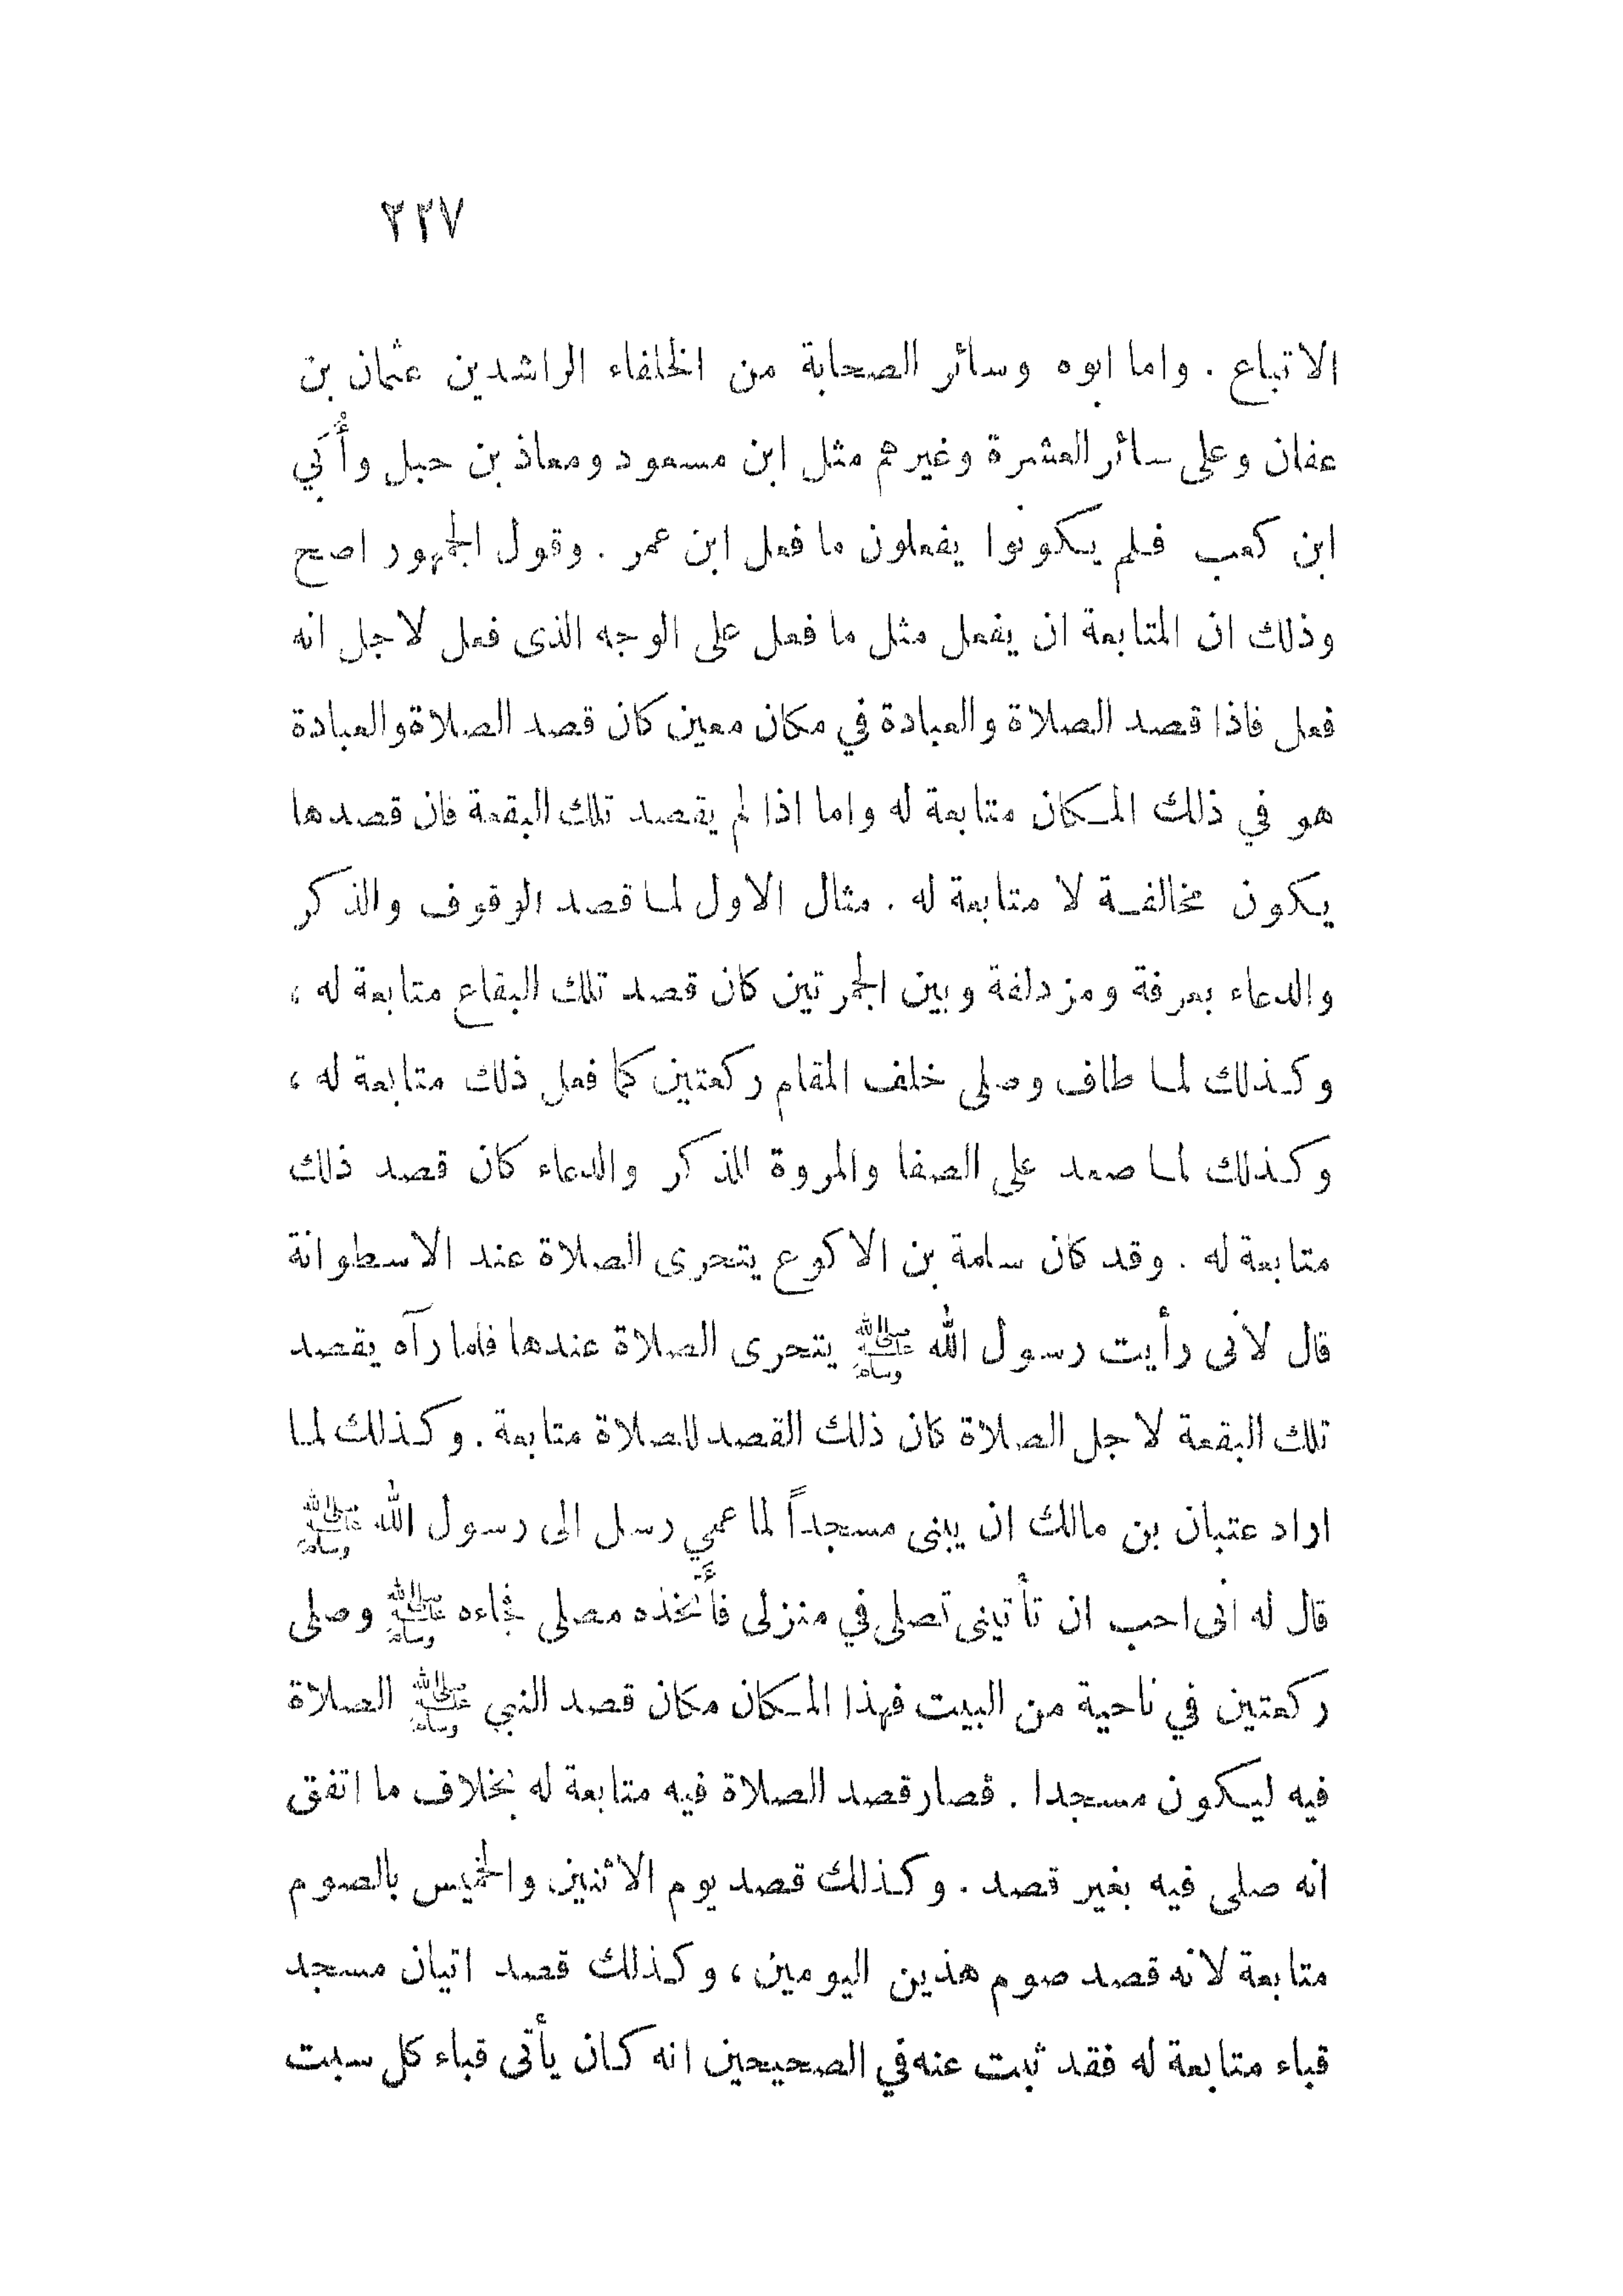 ٢٣٧
الاتباع . واما ابوه وسائر الصحابة من الخلفاء الراشدين عثمان بن
عفان وعلى سائر العشرة وغيرهم مثل ابن مسعود ومعاذ بن جبل وأُبَي
ابن كعب فلم يكونوا يفعلون ما فعل ابن عمر . وقول الجمهور اصح
وذلك ان المتابعة ان يفعل مثل ما فعل على الوجه الذى فعل لاجل انه
فعل فاذا قصد الصلاة والعبادة في مكان معين كان قصد الصلاة والعبادة
هو في ذلك المكان متابعة له واما اذا لم يقصد تلك البقعة فان قصدها
يكون مخالفة لا متابعة له . مثال الاول لما قصد الوقوف والذكر
والدعاء بعرفة ومزدلفة وبين الجمرتين كان قصد تلك البقاع متابعة له ،
وكذلك لما طاف وصلى خلف المقام ركعتين كما فعل ذلك متابعة له ،
وكذلك لما صعد على الصفا والمروة للذكر والدعاء كان قصد ذلك
متابعة له . وقد كان سلمة بن الاكوع يتحرى الصلاة عند الاسطوانة
قال لأنى رأيت رسول الله ﷺ يتحرى الصلاة عندها فلما رآه يقصد
تلك البقعة لاجل الصلاة كان ذلك القصد للصلاة متابعة . وكذلك لما
اراد عتبان بن مالك ان يبنى مسجداً لما عمي رسل الى رسول الله ﷺ
قال له انى احب ان تأتينى تصلى في منزلى فأَتخذه مصلى فجاءه ﷺ وصلى
ركعتين في ناحية من البيت فهذا المكان مكان قصد النبي ﷺ الصلاة
فيه ليكون مسجدا . فصار قصد الصلاة فيه متابعة له بخلاف ما اتفق
انه صلى فيه بغير قصد . وكذلك قصد يوم الاثنين والخميس بالصوم
متابعة لانه قصد صوم هذين اليومين ، وكذلك قصد اتيان مسجد
قباء متابعة له فقد ثبت عنه في الصحيحين انه كان يأتى قباء كل سبت